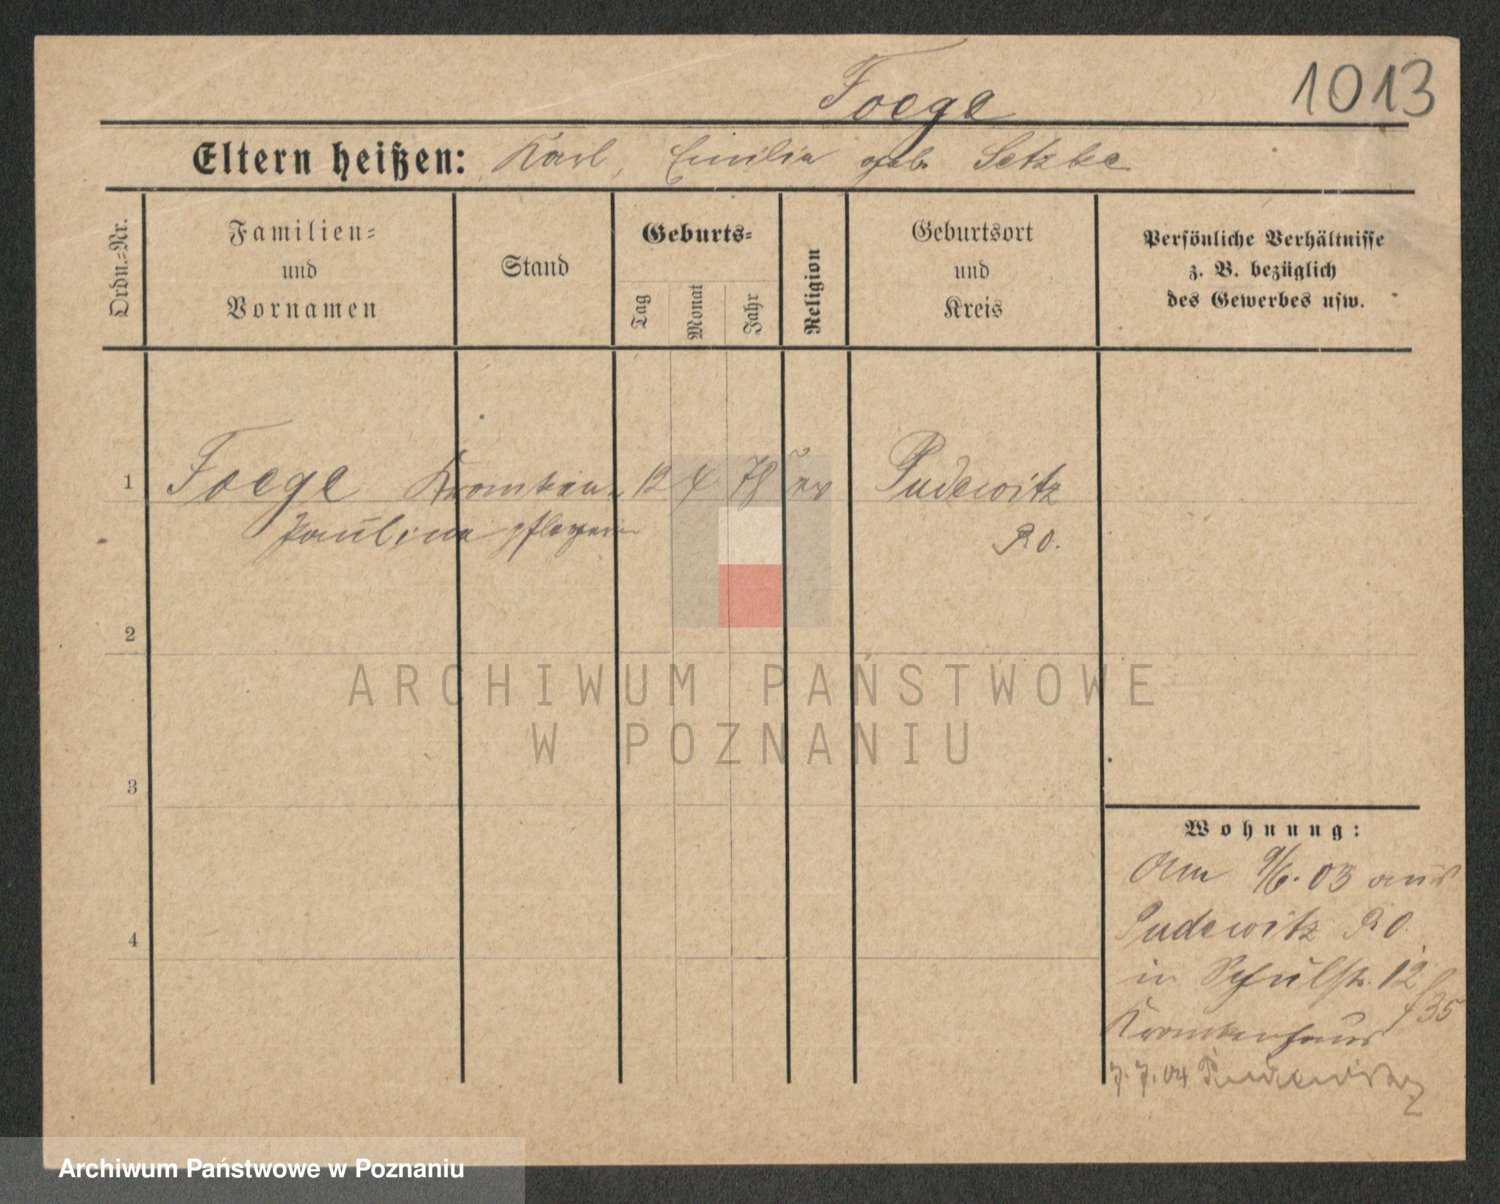 1013
Foege
Eltern heißen: Karl, Emilie geb. Setzke
Ordn.-Nr.
Familien-
und
Vornamen
Stand
Geburts-
Tag
Monat
Jahr
Religion
Geburtsort
und
Kreis
Persönliche Verhältnisse
z. B. bezüglich
des Gewerbes usw.
1 Foege Kranken- 12 4 78 ev Pudewitz
Pauline pflegerin P.O.
2
3
4
Wohnung:
Am 9/6.03 aus
Pudewitz P.O.
in Schulstr. 12
Krankenhaus
7.7.04
ARCHIWUM PAŃSTWOWE
W POZNANIU
Archiwum Państwowe w Poznaniu